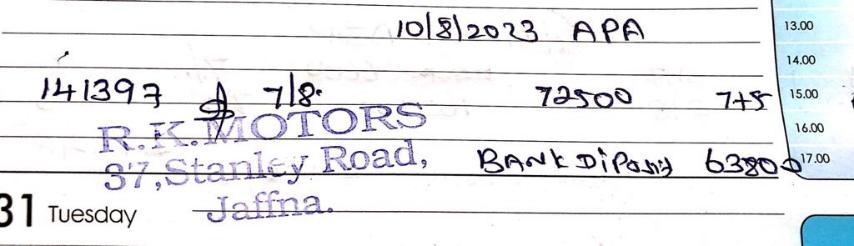 10/8/2023 APA
13.00
14.00
141397 7/8. 72500 7+5 15.00
R.K.MOTORS
16.00
37,Stanley Road, BANK DiPosit 63800 17.00
31 Tuesday Jaffna.